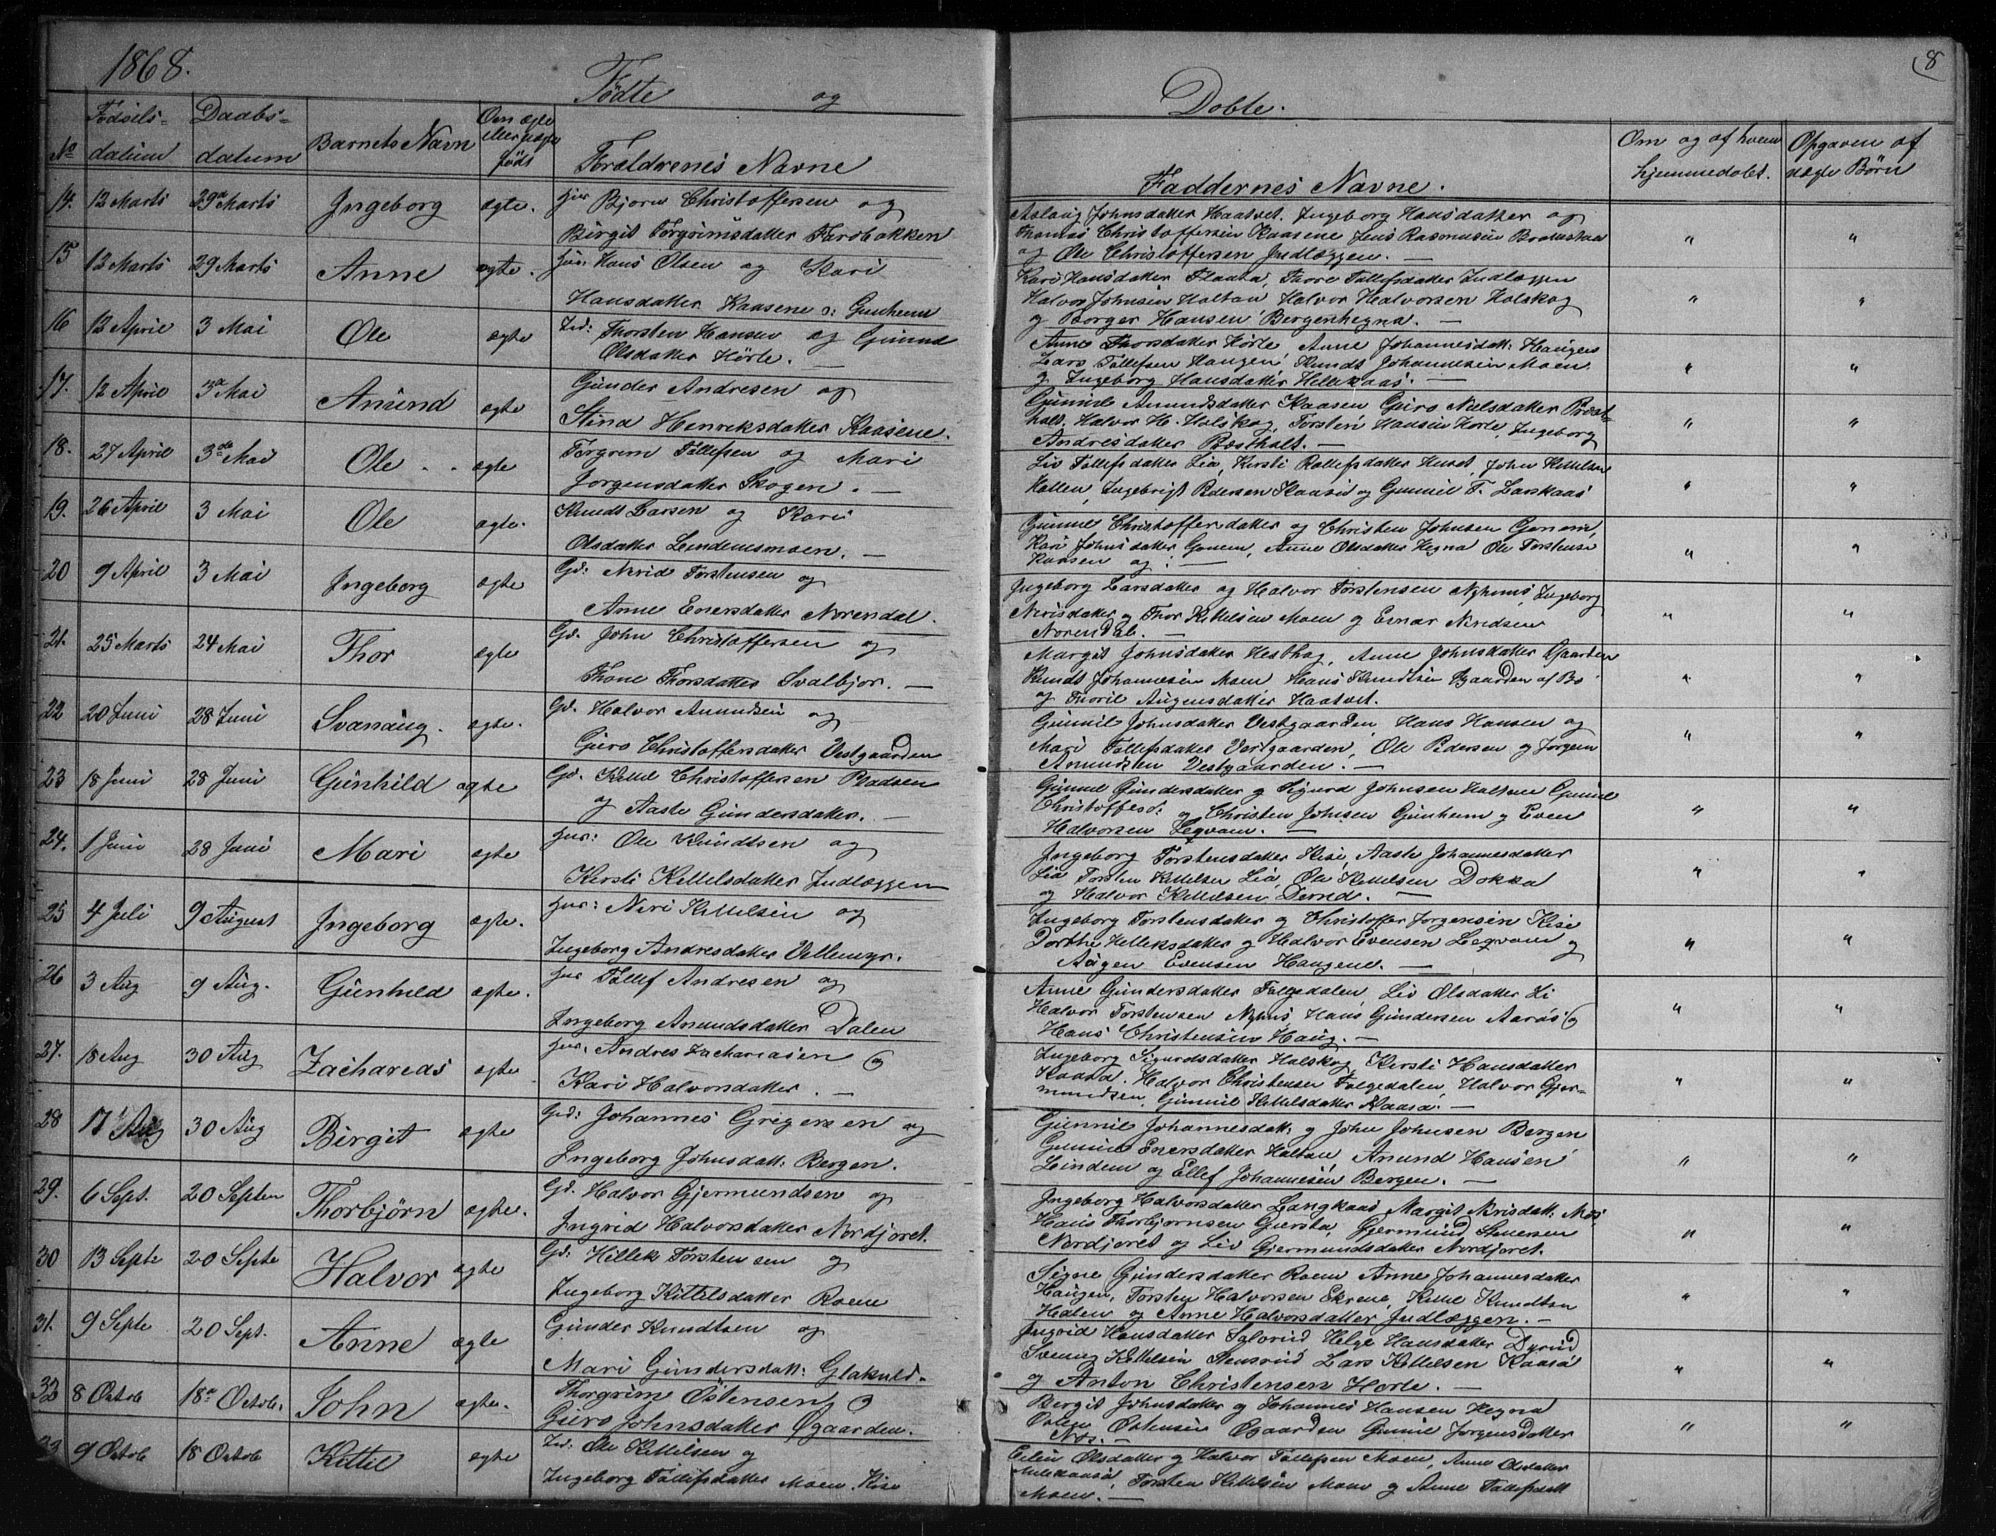 1868.
8
Födte og Döbte.
No
Födsels-datum
Daabs-datum
Barnets Navn
Om ægte eller uægte födt
Forældrenes Navne
Faddernes Navne.
Om og af hvem hjemmedöbt.
Opgaven af uægte Börn
14. 12 Marts 29de Marts Ingeborg ægte. Bjorn Christoffersen og
Birgit Torgrimsdatter
Aslaug Johnsdatter Haatvet. Ingeborg Hansdatter og
Thomas Christoffersen Kaasene Jens Rasmussen
og Ole Christoffersen Indlæggen. —
" "
15 12 Marts 29 Marts Anne ægte. Hans Olsen og Kari
Hansdatter Kaasene o: Gunheim
Kari Hansdatter Flaata, Thore Tollefsdatter Indlæggen
Halvor Johnsen Haltan Halvor Halvorsen Holskog
og Borger Hansen Bergenhegna. —
" "
16 12 April 3 Mai Ole ægte Ind: Thorsten Hansen og Gunild
Olsdatter Hörte. —
Anne Thorsdatter Hörte Anne Johannesdatt: Haugen
Lars Tollefsen Haugen, Knudt Johannesen Moen
og Ingeborg Hansdatter Hellikaas. —
" "
17. 12 April 3de Mai Amund ægte Gunder Andresen og
Stina Henriksdatter Kaasene.
Gunnild Amundsdatter Kaasen Guro Nielsdatter
Halvor H. Holskog, Torsten Hansen Horte, Ingeborg
Andresdatter Bøstholt. —
" "
18. 27 April 3de Mai Ole ægte Torgrim Tollefsen og Mari
Jorgensdatter Skogen. —
Liv Tollefsdatter Lia, Kersti Rollefsdatter John Kittelsen
Hallen, Ingebrigt Pedersen Kaasa og Gunnil T. Larskaas
" "
19. 26 April 3 Mai Ole ægte. Knudt Larsen og Kari
Olsdatter Lindemsmoen. —
Gunnil Christoffersdatter og Christen Johnsen Gonem,
Kari Johnsdatter Gonem, Anne Olsdatter Hegna Ole Torstens:
Kaasen og: —
" "
20 9 April 3 Mai Ingeborg ægte Gd: Nerid Torstensen og
Anne Enersdatter Norendal.
Ingeborg Larsdatter og Halvor Torstensen Nyhuus, Ingeborg
Nerisdatter og Thor Kittelsen Moen og Einar Neridsen
Norendal. —
" "
21. 25 Marts 24 Mai Thor ægte Gd. John Christoffersen og
Thone Thorsdatter Svalbjor. —
Margit Johnsdatter Hesthag, Anne Johnsdatter Gaarden
Knudt Johannesen Moen Hans Knudtsen Gaarden af Bø
og Thoril Augensdatter Haatvet.
" "
22 20 Juni 28 Juni Svanaug. ægte. Gd. Halvor Amundsen og
Guro Christoffersdatter Vestgaarden
Gunnil Johnsdatter Vestgaarden, Hans Hansen og
Mari Tollefsdatter Vestgaarden, Ole Pedersen og Jorgen
Amundsen Vestgaarden. —
" "
23 18 Juni 28 Juni Gunhild ægte Gd. Kittel Christoffersen Pladsen
og Aaste Gundersdatter. —
Gunnil Gundersdatter og Sigurd Johnsen Haltan Gunil
Christoffersd: og Christen Johnsen Gunheim og Even
Halvorsen Legvam. —
" "
24. 1 Juni 28 Juni Mari ægte Hus: Ole Knudtsen og
Kersti Kittelsdatter Indlæggen
Ingeborg Torstensdatter Kise, Aaste Johannesdatter
Lia Torsten Kittelsen Lia, Ole Kittelsen Dokka
og Halvor Kittelsen —
" "
25 4 Juli 9 August Ingeborg ægte. Hus: Neri Kittelsen og
Ingeborg Andresdatter Vellemyr.
Ingeborg Torstensdatter og Christoffer Jorgensen Kise
Dorthe Helleksdatter og Halvor Evensen Legvam og
Augen Evensen Haugene. —
" "
26 3 Aug 9 Aug. Gunhild ægte. Hus Tollef Andresen og
Ingeborg Amundsdatter Dalen
Anne Gundersdatter Folgedalen, Liv Olsdatter Li
Halvor Torstensen Nyhus Hans Gundersen Aaraas og
Hans Christensen Haug. —
" "
27. 18 Aug 30 Aug Zacharias ægte Hus. Andres Zachariasen og
Kari Halvorsdatter. —
Ingeborg Sigurdsdatter Holskog, Kersti Hansdatter
Kaasa. Halvor Christensen Folgedalen, Halvor Gjer-
mundsen, Gunnil Kittelsdatter Kaasa. —
" "
28 17 Aug 30 Aug Birgit ægte Gd: Johannes Grigersen og
Ingeborg Johnsdatt: Bergen.
Gunnil Johannesdatt: og John Johnsen Bergen
Gunnil Enersdatter Haltan Amund Hansen
Lindem og Ellef Johannesen Bergen. —
" "
29. 6 Sept. 20 Septen Thorbjörn ægte. Gd. Halvor Gjermundsen og
Ingrid Halvorsdatter Nordjoret.
Ingeborg Halvorsdatter Langkaas Margit Nerisdatt: Næs
Hans Thorbjornsen Gjersta, Gjermund
Nordjoret og Liv Gjermundsdatter Nordjoret.
" "
30 13 Septe 20 Septe Halvor ægte Gd: Hellek Torstensen og
Ingeborg Kittilsdatter Roene
Signe Gundersdatter Roen Anne Johannesdatter
Haugen, Torsten Halvorsen Ekrene, Kittel Knudtsen
Haten og Anne Halvorsdatter Indlæggen. —
" "
31. 9 Septe 20 Sept. Anne ægte Gunder Knudtsen og
Mari Gundersdatt: Glakuld.
Ingrid Hansdatter Helge Hansdatter Dyrud
Svenug Kittelsen Stensrud Lars Kittelsen Kaasa
og Anton Christensen Horte. —
" "
32 8 Octob 18de Octob. John ægte. Thorgrim Östensen og
Guro Johnsdatter Øgaarden.
Bergit Johnsdatter og Johannes Hansen Hegna
Osten Ostensen Øgaarden Gunnil Jorgensdatter
Næs. —
" "
33 9 Octob 18 Octob Kittil ægte Ind: Ole Kittilsen og
Ingeborg Tollefsdatter Moen. Kise
Olsdatter og Halvor Tollefsen Moen, Anne Olsdatter
Torsten Kittilsen Moen og Anne Tollefsdatt
Moen. —